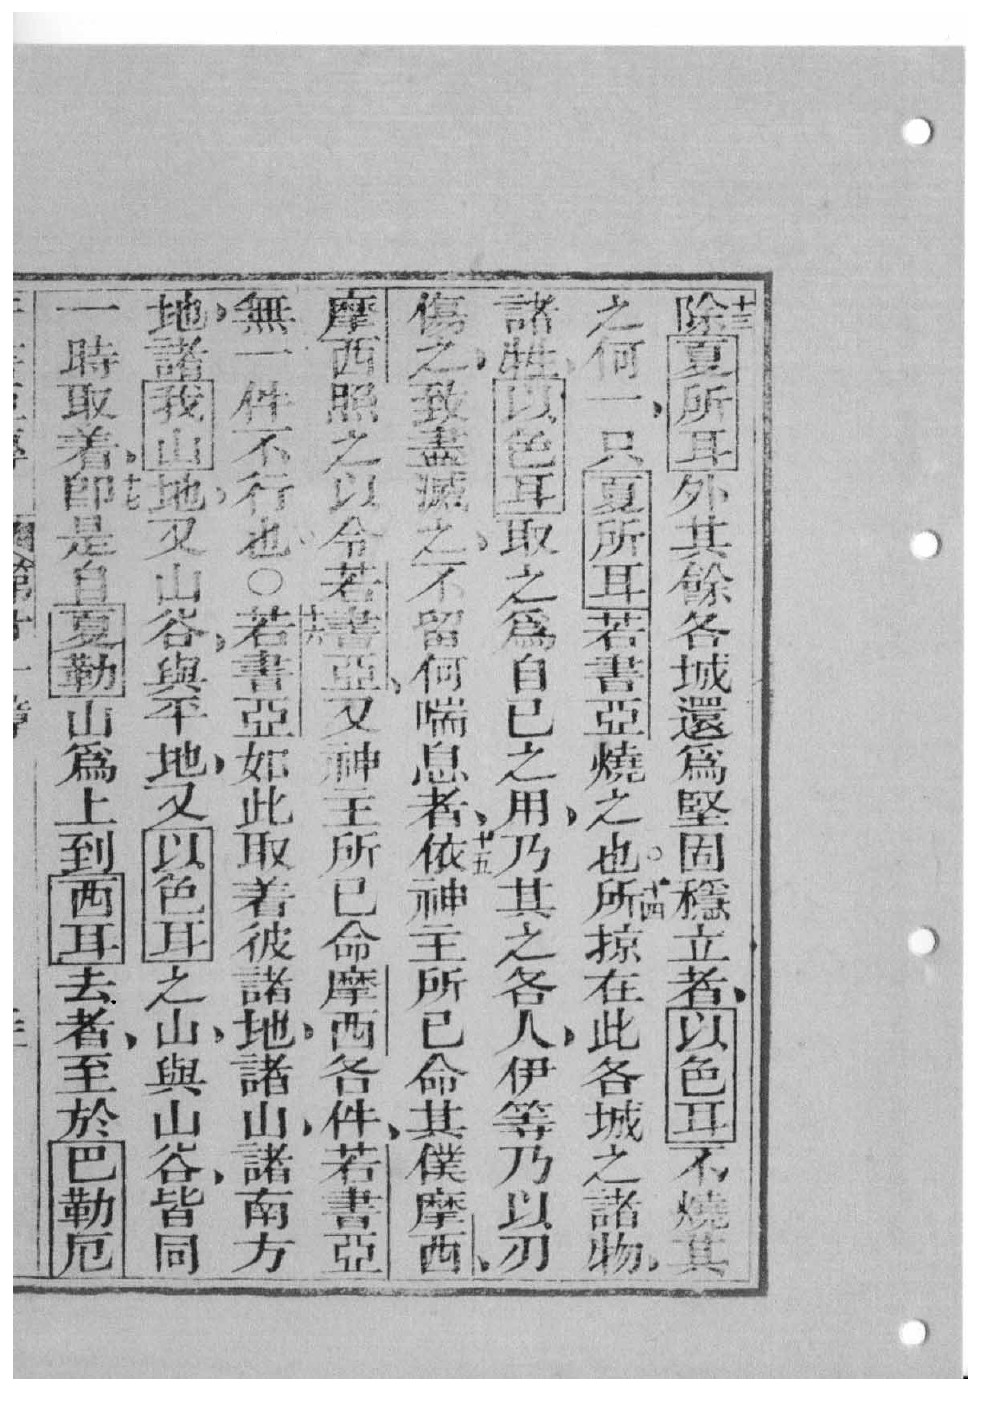 十三除夏所耳外其餘各城還爲堅固穩立者、以色耳不燒其
之何一、只夏所耳若書亞燒之也。十四所掠在此各城之諸物、
諸牲、以色耳取之爲自已之用、乃其之各人、伊等乃以刃
傷之、致盡滅之、不留何喘息者、十五依神主所已命其僕摩西、
摩西照之以令若書亞、又神主所已命摩西各件、若書亞
無一件不行也。○十六若書亞如此取着彼諸地、諸山、諸南方
地、諸我山地、又山谷、與平地、又以色耳之山、與山谷、皆同
一時取着、十七卽是自夏勒山爲上到西耳去者、至於巴勒厄